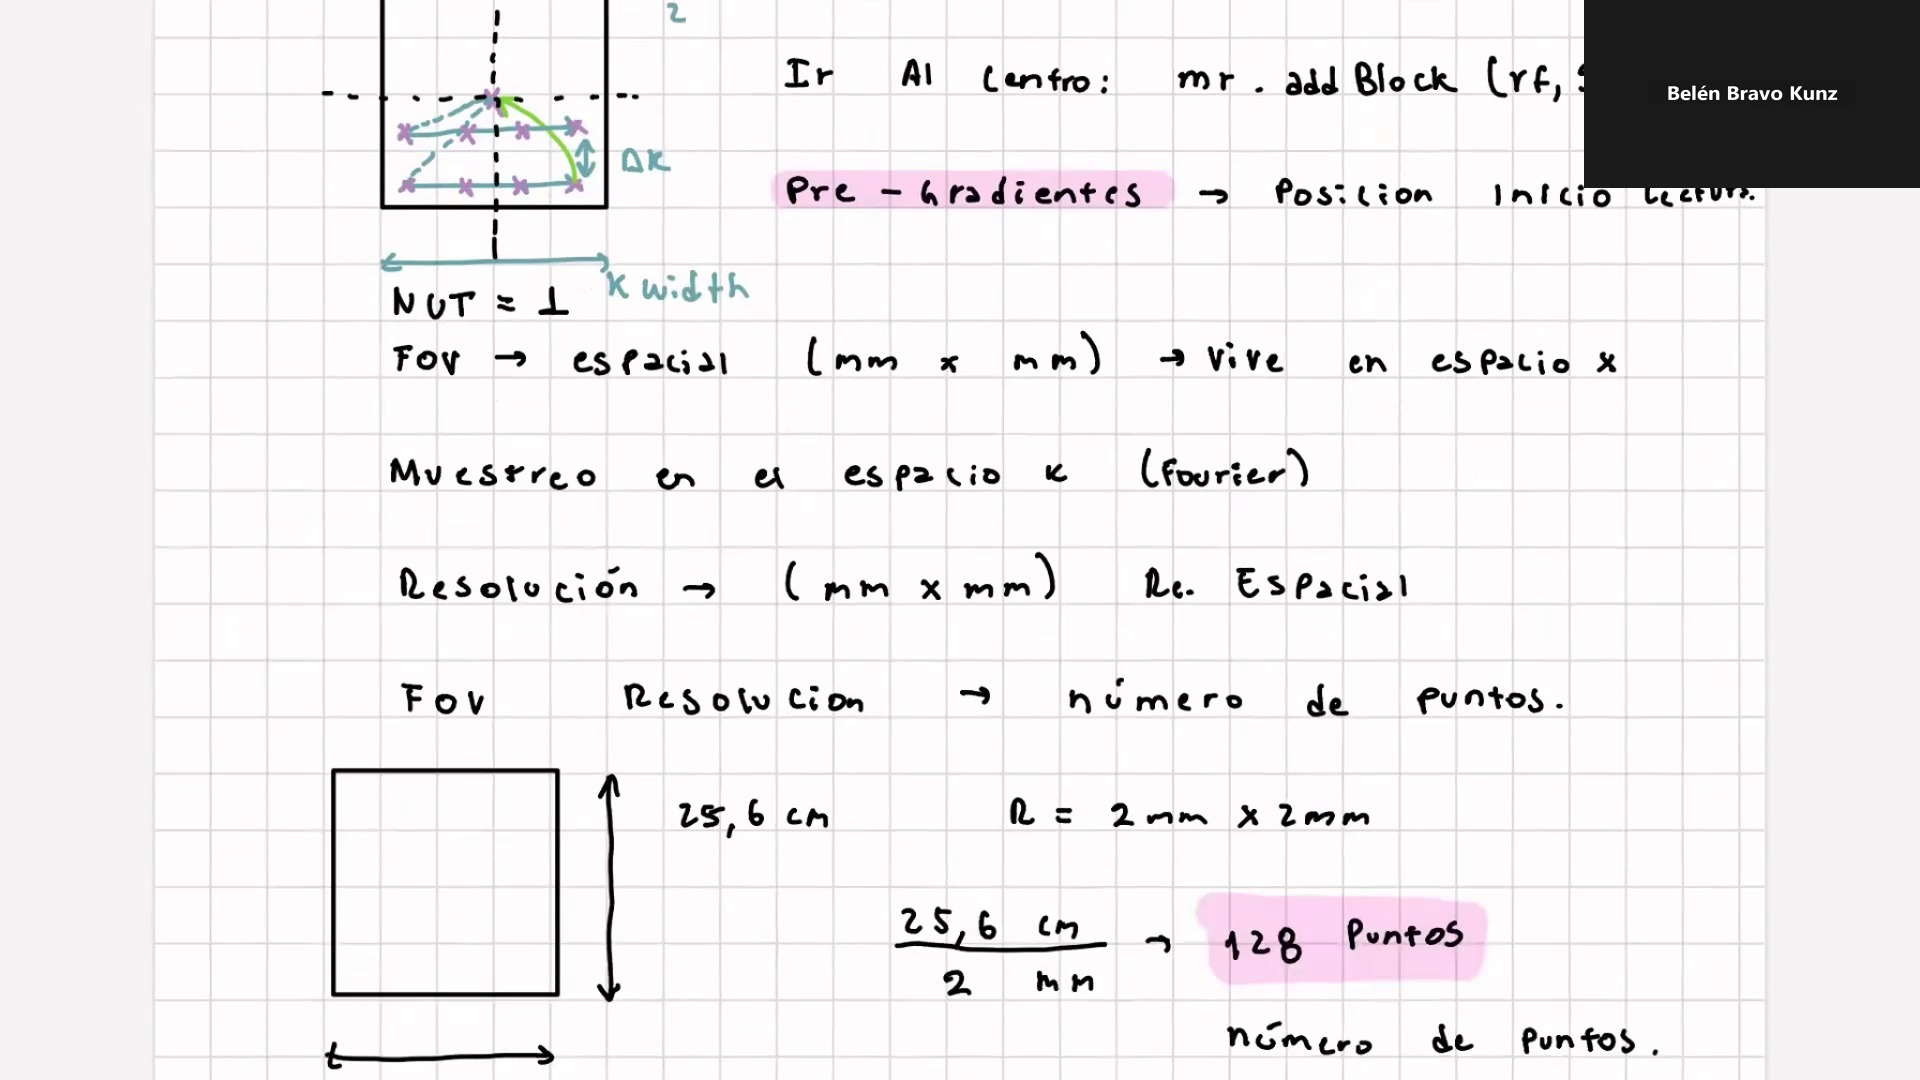 2
Ir Al Centro: mr. addBlock (rf,
Belén Bravo Kunz
Δk
Pre-Gradientes → Posicion Inicio Lectura.
k width
NUT = 1
FOV → espacial (mm x mm) → vive en espacio x
Muestreo en el espacio k (Fourier)
Resolución → (mm x mm) Re. Espacial
FOV Resolucion → número de puntos.
25,6 cm R = 2mm x 2mm
25,6 cm
2 mm
→ 128 Puntos
número de puntos.